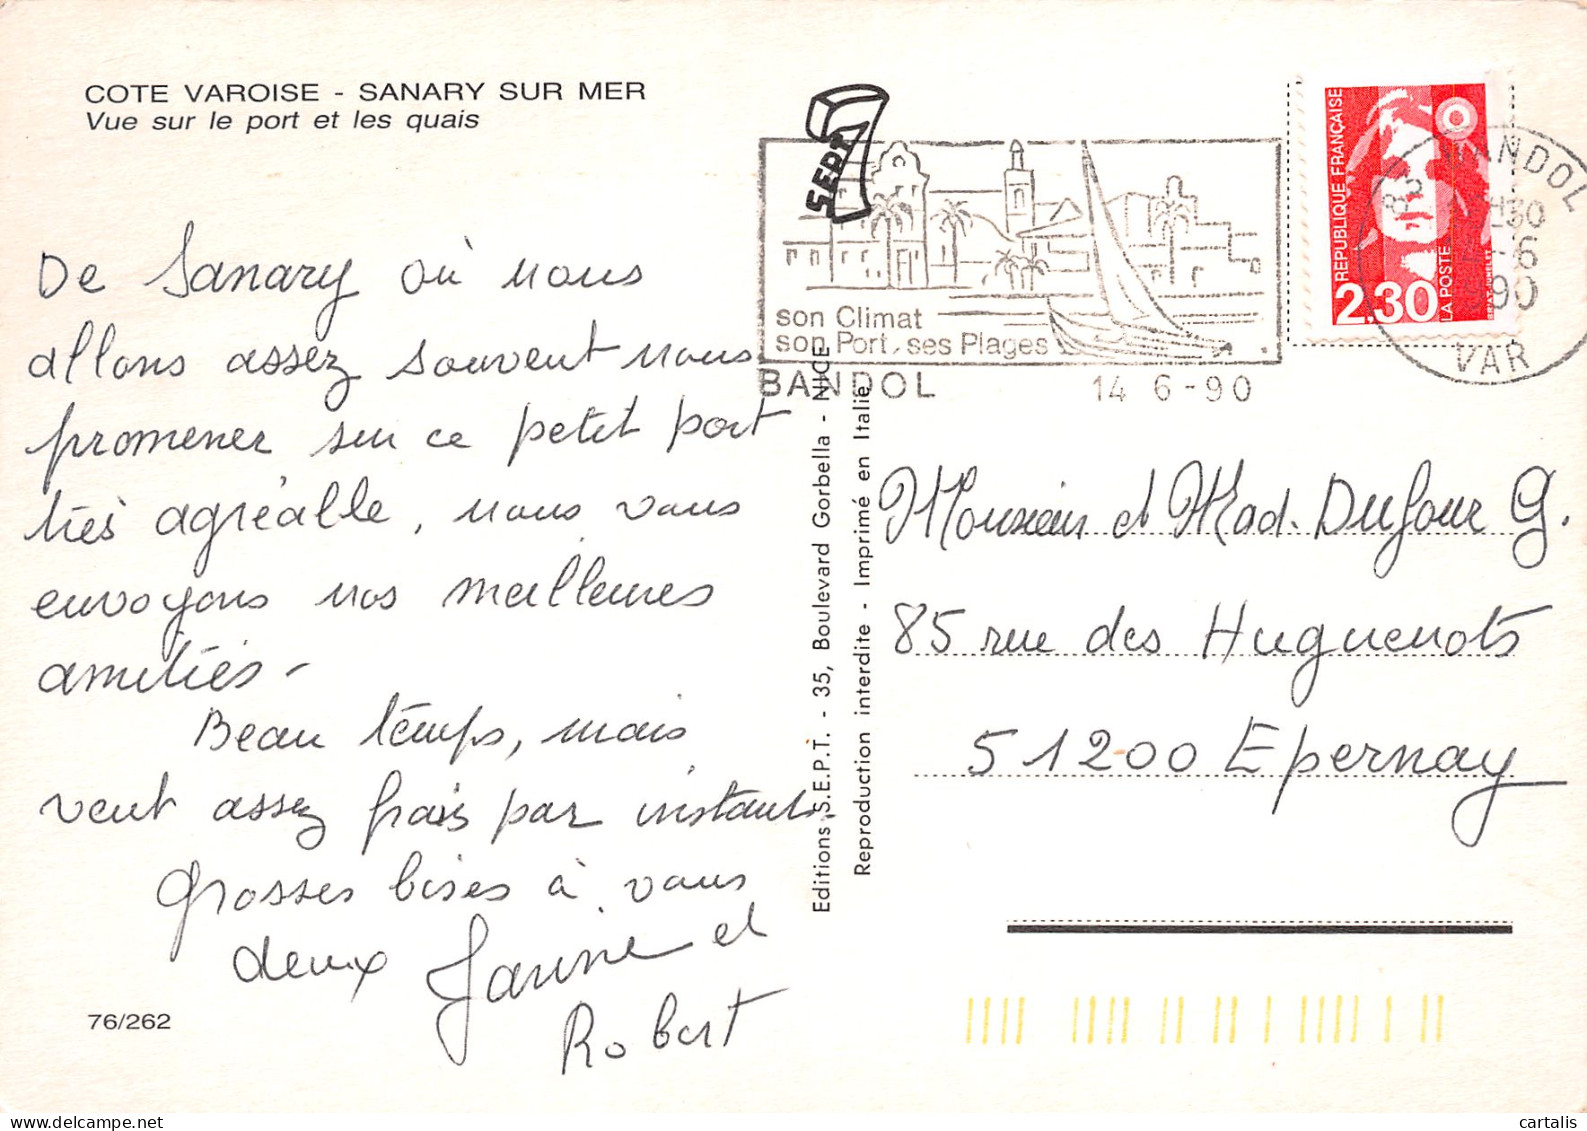 COTE VAROISE - SANARY SUR MER
Vue sur le port et les quais
De Sanary où nous
allons assez souvent nous
promener sur ce petit port
très agréable, nous vous
envoyons nos meilleures
amitiés -
Beau temps, mais
vent assez frais par instants.
Grosses bises à vous
deux Janine et
Robert
76/262
SEPT
son Climat
son Port, ses Plages
BANDOL
14 6-90
REPUBLIQUE FRANÇAISE
2,30
LA POSTE
83 BANDOL
VAR
Editions S.E.P.T. - 35, Boulevard Gorbella - NICE
Reproduction interdite - Imprimé en Italie
Monsieur et Mad. Dufour G.
85 rue des Huguenots
51200 Epernay
cartalis